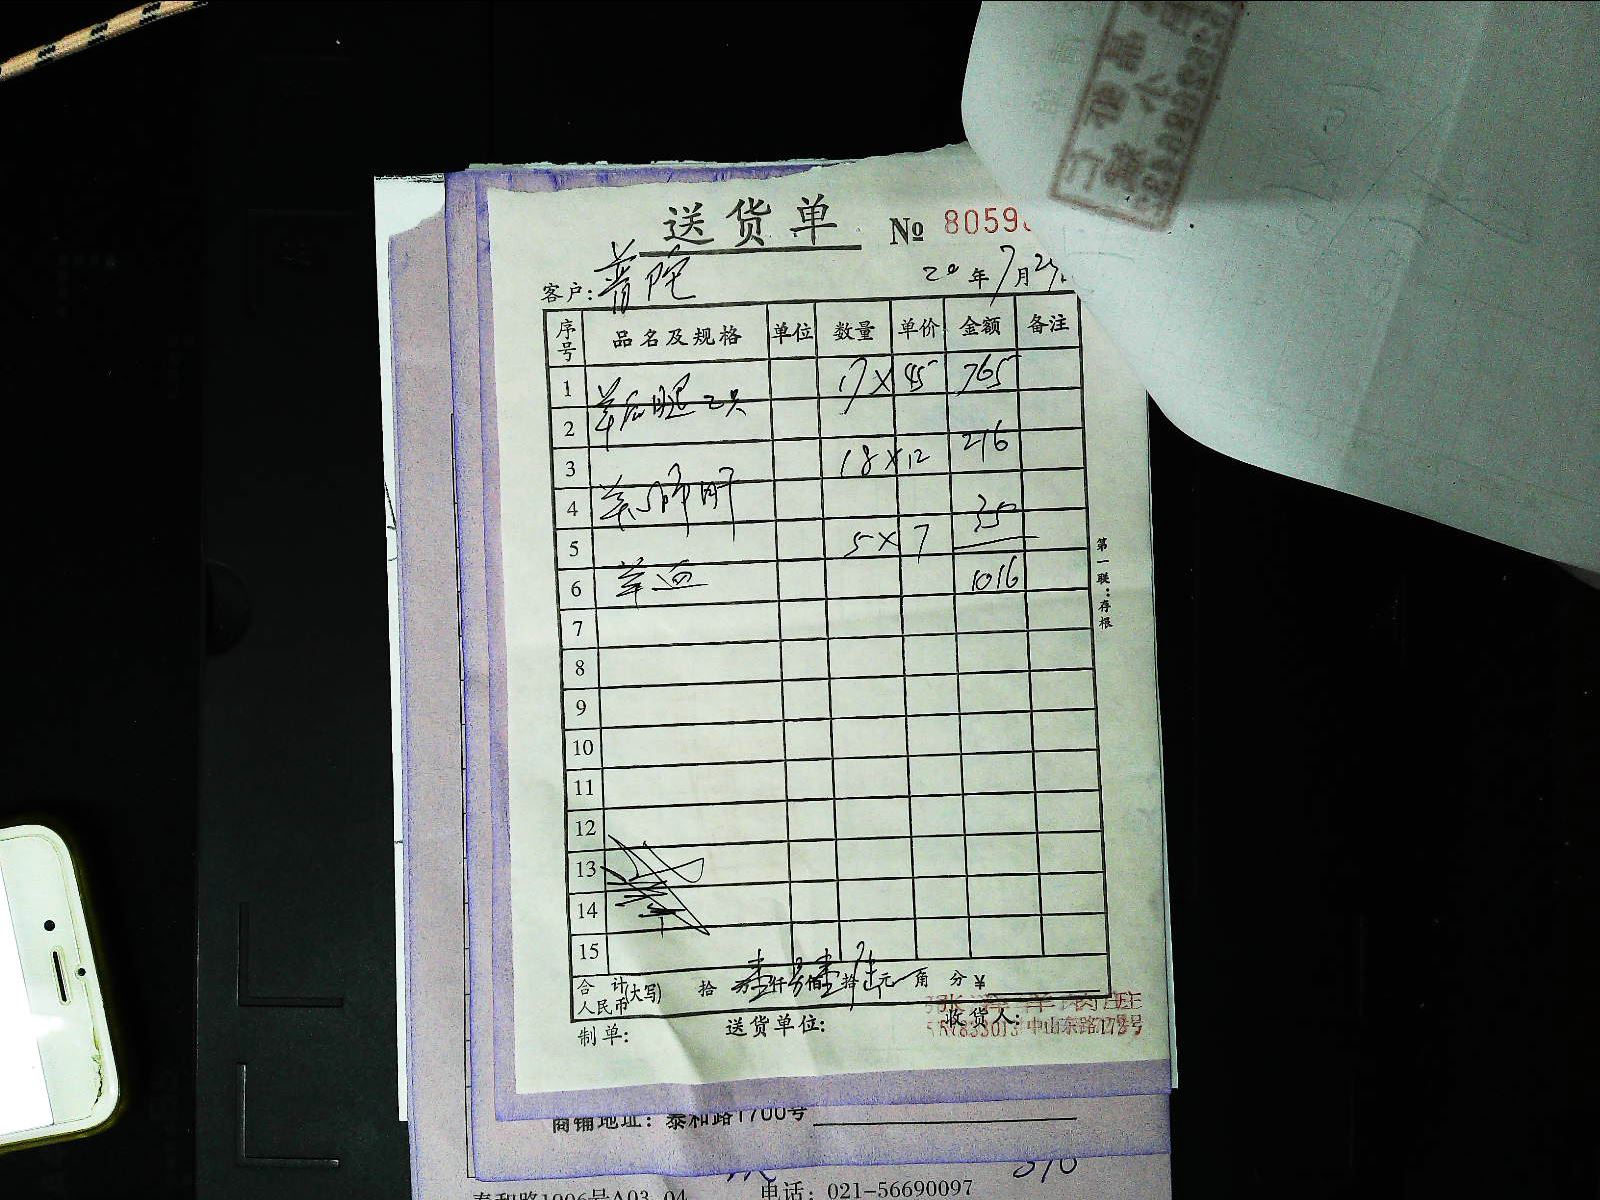 送货单 № 8059
客户: 普陀 20年7月29
序号 品名及规格 单位 数量 单价 金额 备注
1 羊后腿2只 17× 45 765
2
3 18× 12 216
4
5 5× 7 35
6 羊血 1016
7
8
9
10
11
12
13
14
15
合计人民币(大写) 拾 万 壹仟 零佰 壹拾 陆元 角 分 ¥
制单: 送货单位: 收货人:
中山东路179号
第一联:存根
商铺地址: 泰和路1700号
泰和路1006号A03-04 电话: 021-56690097